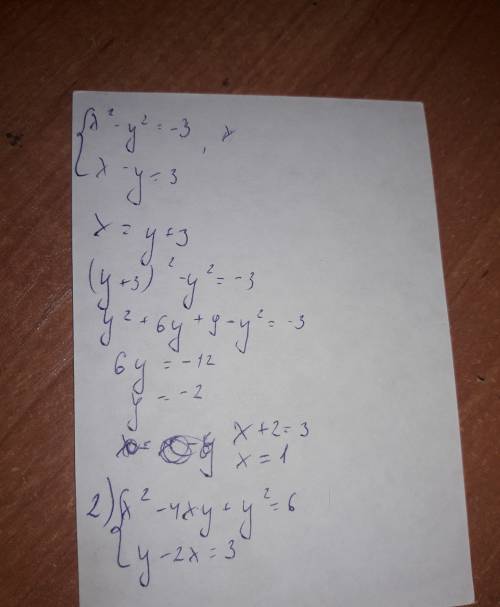 {x² - y² = -3
x - y = 3
x = y + 3
(y+3)² - y² = -3
y² + 6y + 9 - y² = -3
6y = -12
y = -2
x + 2 = 3
x = 1
2) {x² - 4xy + y² = 6
y - 2x = 3